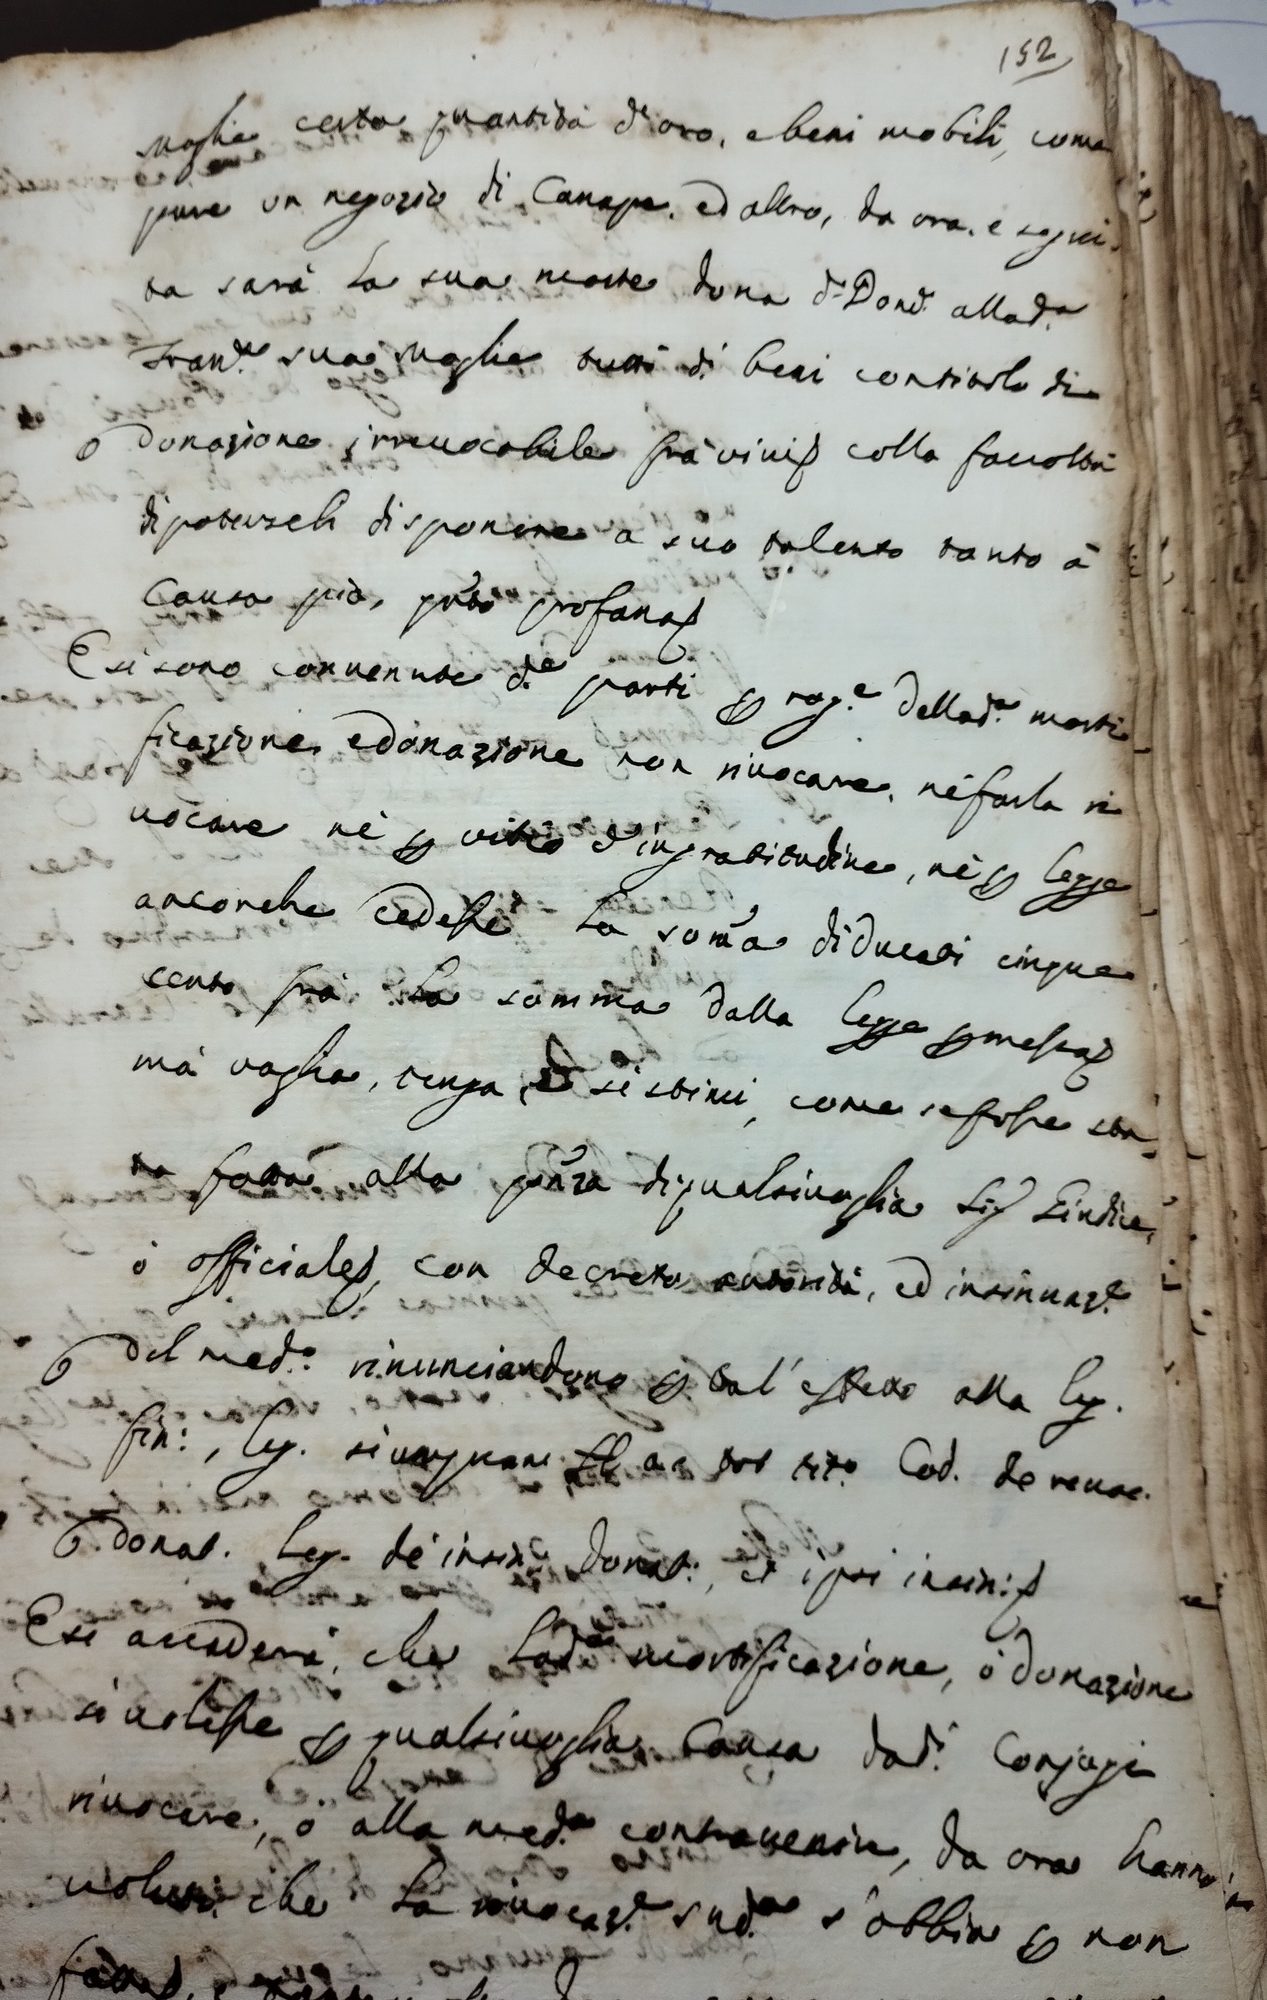 152
Moglie certa quantità d'oro, e beni mobili, come
pure un negozio di Canape, ed altro, da ora, e segui-
ta sarà la sua morte dona d.o Don.e alla d.a
Fran.a sua Moglie tutti d.i beni con titolo di
donazione irrevocabile frà vivi colla facoltà
di poterseli disponere a suo talento tanto à
Causa pia, q̃nto profana
E si sono convenute d.e parti per rag.e della d.a morti-
ficazione, e donazione non rivocare, nè farla ri
vocare nè per vitio d'ingratitudine, nè per legge
ancorche cedesse la som̃a di Ducati cinque
cento frà la somma dalla legge permessa
mà vaglia, tenga, e si stimi, come se fosse sta-
ta fatta alla p̃nza di qualsivoglia Sig.r Giudice,
ò officiale, con decreto autorità, ed insinuaz.e
del med.o rinunciandono per tal' effetto alla leg.
fin:, leg. si unquam ac tot tit.o Cod. de revoc.
donat. leg. de insin. donat:, et ipsi insin:
E se accaderà, che la d.a mortificazione, ò donazione
si volesse per qualsivoglia Causa da d.i Conjugi
rivocare, ò alla med.a contravenire, da ora hanno
voluto, che la rivocaz.e sud.a s'abbia per non
fatta, e